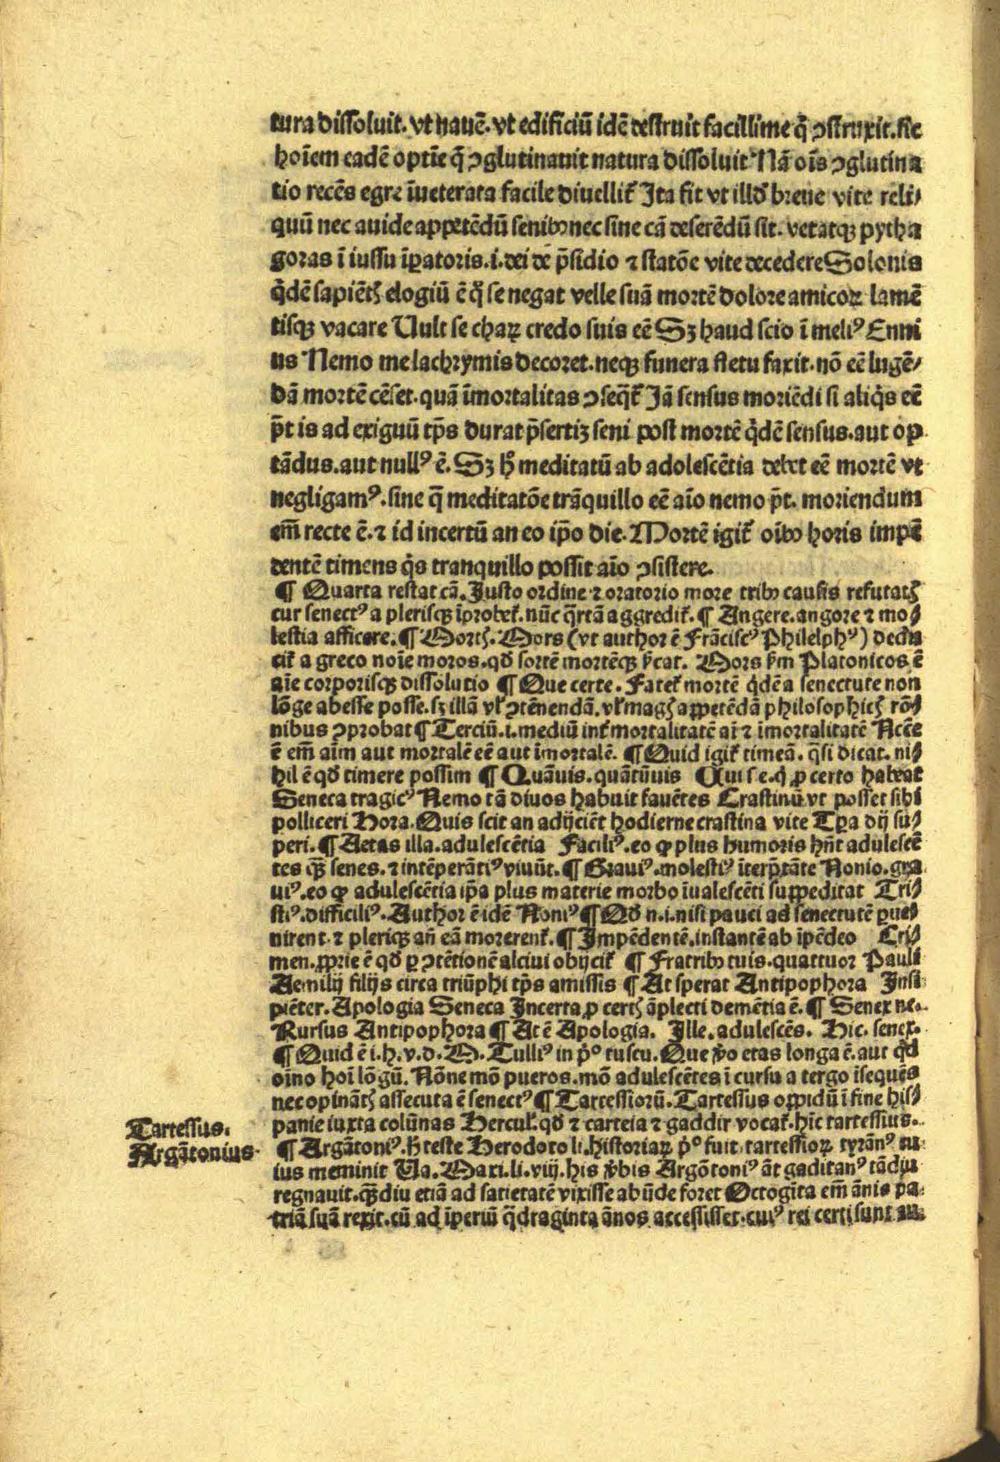 tura dissoluit. vt nauē. vt edificiū idē destruit facillime q̄ ꝯstruxit. sic
hoīem eadē optīe q̄ ꝯglutinauit natura dissoluit Nā oīs ꝯglutina
tio recēs egre īueterata facile diuellit᷑ Ita fit vt illd̕ breue vite reli⸗
quū nec auide appetēdū senibꝰ nec sine cā deserēdū sit. vetatqꝫ pytha
goras ī iussu īꝑatoris .i. dei de p̄sidio ⁊ statōe vite decedere Solonis
q̇dē sapiētꝭ elogiū ē q̇ se negat velle suā mortē dolore amicoꝝ lamē
tisqꝫ vacare Uult se charꝝ credo suis eē Sꝫ haud scio ī meliꝰ Enni
us Nemo me lachrymis decoret. neqꝫ funera fletu faxit. nō eē lugē⸗
dā mortē cēset. quā īmortalitas ꝯseq̇t᷑ Jā sensus moriēdi si aliq̇s eē
p̄t is ad exiguū tp̄s durat p̄sertiꝫ seni post mortē q̇dē sensus. aut op
tādus. aut nullꝰ ē. Sꝫ h̕ meditatū ab adolescētia debet eē mortē vt
negligamꝰ. sine q̄ meditatōe trāquillo eē aīo nemo p̄t. moriendum
em̄ recte ē. ⁊ id incertū an eo ip̄o die. Mortē igit᷑ oībꝰ horis impē
dentē timens q̇s tranquillo possit aīo ꝯsistere.
¶ Quarta restat cā. Justo ordine ⁊ oratorio more tribꝰ causis refutatꝭ
cur senectꝰ a plerisqꝫ īprobet᷑. nūc q̄rtā aggredit᷑. ¶ Angere. angore ⁊ mo⸗
lestia afficere. ¶ Mortꝭ. Mors (vt author ē Frāciscꝰ Philelphꝰ) dedu
cit᷑ a greco noīe moros. qd̕ sortē mortēqꝫ ẜcat. Mors ẜm Platonicos ē
aīe corporisqꝫ dissolutio ¶ Que certe. Fatet᷑ mortē q̇dē a senectute non
lōge abesse posse. sꝫ illā vl̕ ꝯtēnendā. vl̕ magꝭ appetēdā philosophicꝭ rō⸗
nibus ꝯprobat ¶ Terciū. i. mediū int᷑ mortalitatē aīe ⁊ īmortalitatē Necē
ē em̄ aīm aut mortalē eē aut īmortalē. ¶ Quid igit᷑ timeā. q̄si dicat. ni⸗
hil ē qd̕ timere possim ¶ Quāuis. quātūuis Qui s e. q̇ ꝓ certo habeat
Seneca tragicꝰ Nemo tā diuos habuit fauētes Crastinū vt posset sibi
polliceri Hora. Quis scit an adijciēt hodierne crastina vite Tꝑa dij su⸗
peri. ¶ Aetas illa. adulescētia Faciliꝰ. eo ꝙ plus humoris hn̄t adulescē
tes qꝫ̄ senes. ⁊ intēperātiꝰ viuūt. ¶ Grauiꝰ. molestiꝰ īterp̄tāte Nonio. gra
uiꝰ. eo ꝙ adulescētia ip̄a plus materie morbo īualescēti suppeditat Tri⸗
stiꝰ. difficiliꝰ. Author ē idē Noniꝰ ¶ Qd̕ n. i. nisi pauci ad senectutē ꝑue⸗
nirent. ⁊ pleriqꝫ añ eā morerent᷑. ¶ Impēdentē. instantē ab īpēdeo Cri⸗
men. ꝓprie ē qd̕ ꝑ ꝯtētionē alcivi obijcit᷑ ¶ Fratribꝰ tuis. quattuor Pauli
Aemilij filijs circa triūphi tp̄s amissis ¶ At sperat Antipophora Insi
piēter. Apologia Seneca Incerta ꝓ certꝭ āplecti demētia ē. ¶ Senex ne.
Rursus Antipophora ¶ At ē Apologia. Ille. adulescēs. Hic. senex.
¶ Quid ē i. h. v. d. M. Tulliꝰ in pº tuscu. Que v̕o etas longa ē. aut qd̕
oīno hoī lōgū. Nōne mō pueros. mō adulescētes ī cursu a tergo īsequēs
nec opinātꝭ assecuta ē senectꝰ ¶ Tartessiorū. Tartessus oppidū ī fine his⸗
panie iuxta colūnas Hercul᷑. qd̕ ⁊ carteia ⁊ gaddir vocat᷑. hīc tartessius.
¶ Argātoniꝰ. h̕ teste Herodoto li. historiaꝝ pº fuit. tartessioꝝ tyrānꝰ cu
ius meminit Ua. Maxi. li. viij. his v̕bis Argōtoniꝰ āt gaditanꝰ tādiu
regnauit. qꝫ̄diu etiā ad satietatē vixisse abūde foret Octogīta em̄ ānis pa⸗
triā suā rexit. cū ad īperiū q̄draginta ānos accessisset. cuiꝰ rei certi sunt au
Tartessus.
Argātonius.